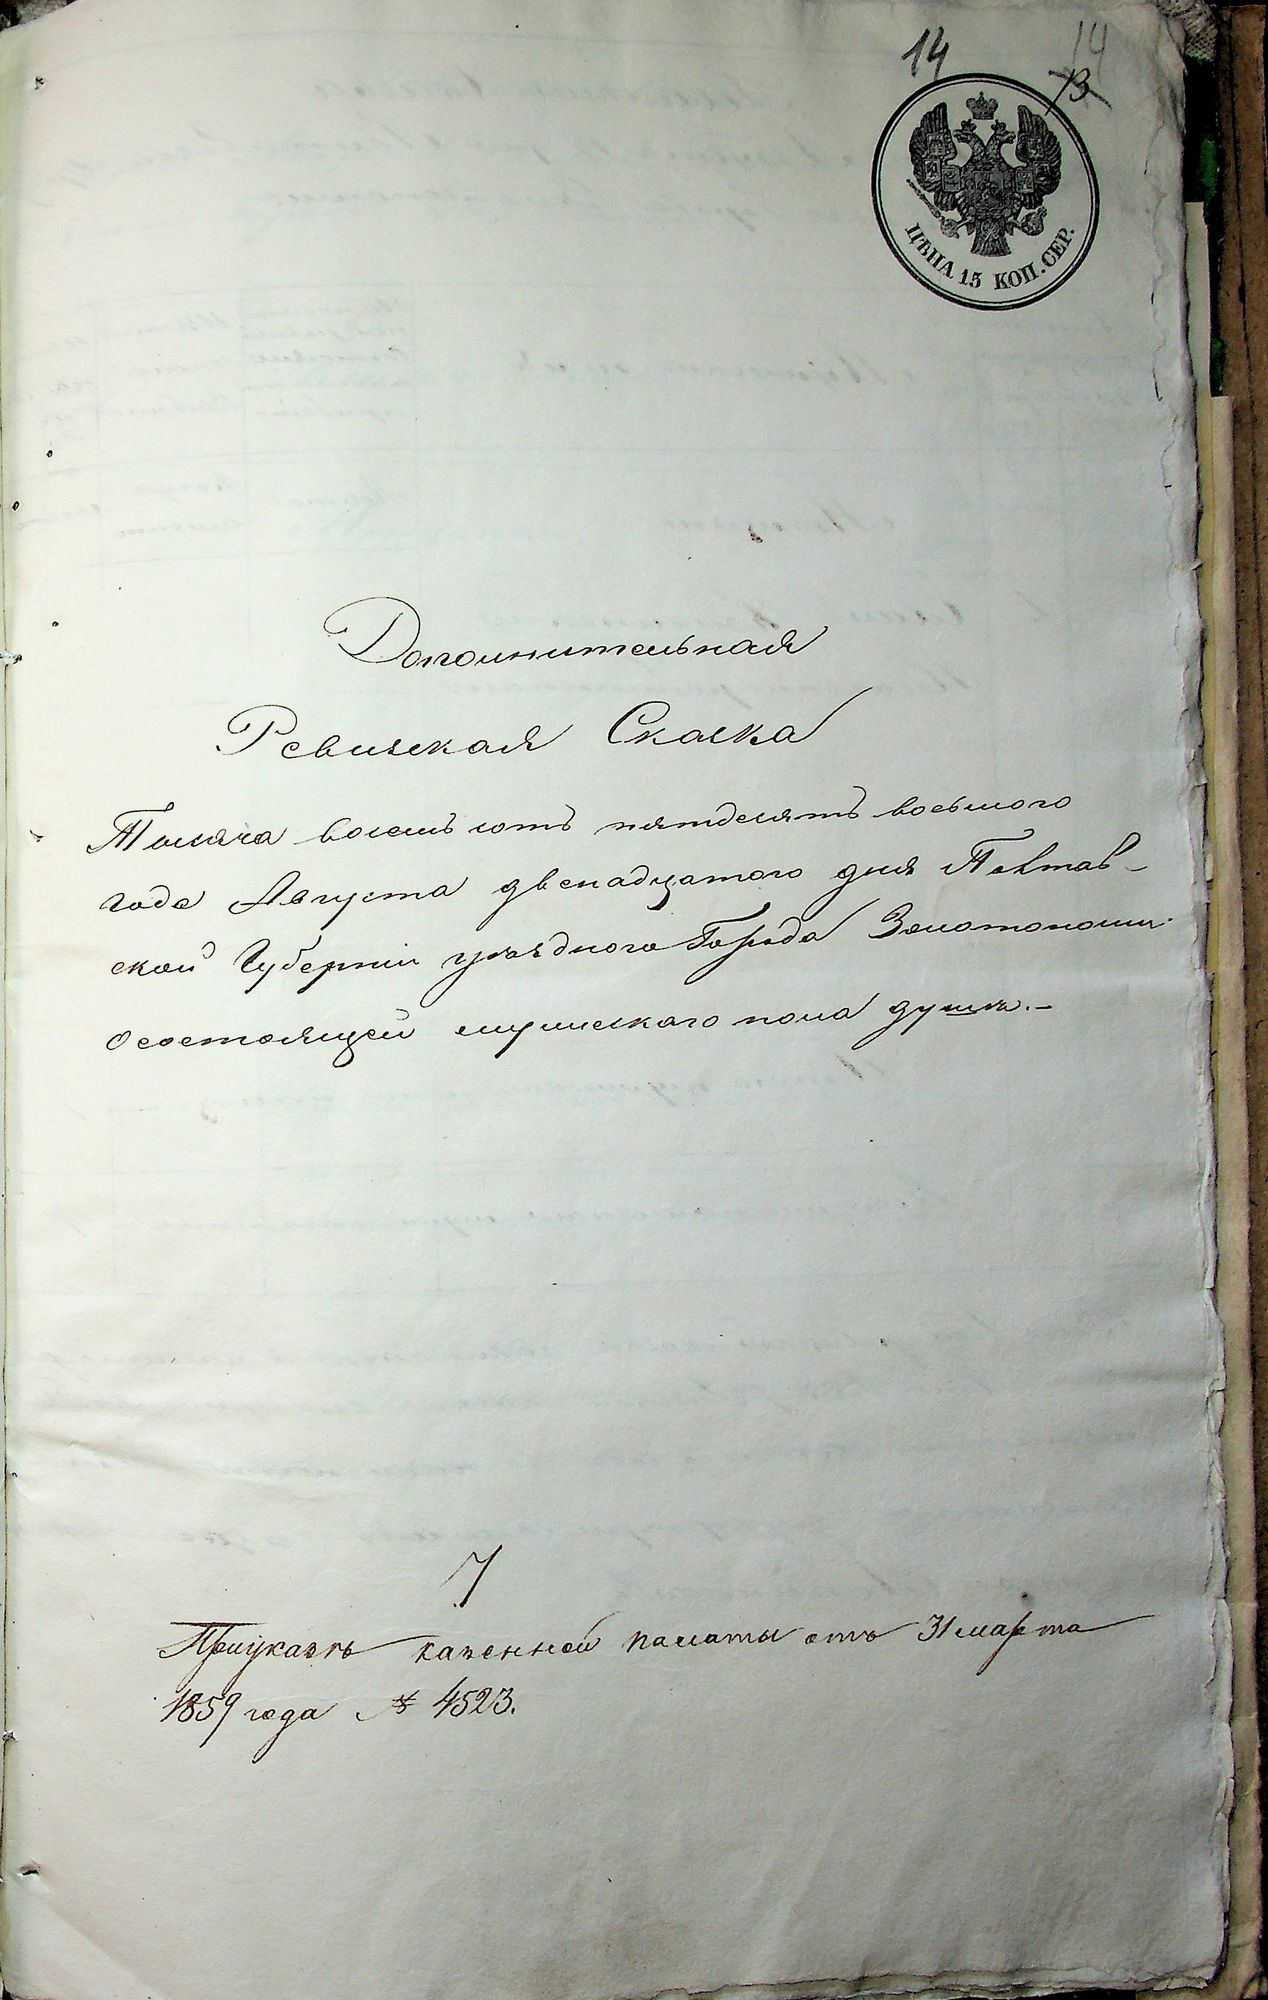 14
14
13
ЦѢНА 15 КОП. СЕР.
Дополнительная
Ревизская Сказка
Тысяча восемь сотъ пятдесятъ восьмого
года Августа двенадцатого дня Полтав-
ской Губерніи уѣзднаго Города Золотоноши
о состоящей мужескаго пола душѣ.-
7
Приуказѣ казенной палаты отъ 31 марта
1859 года № 4523.